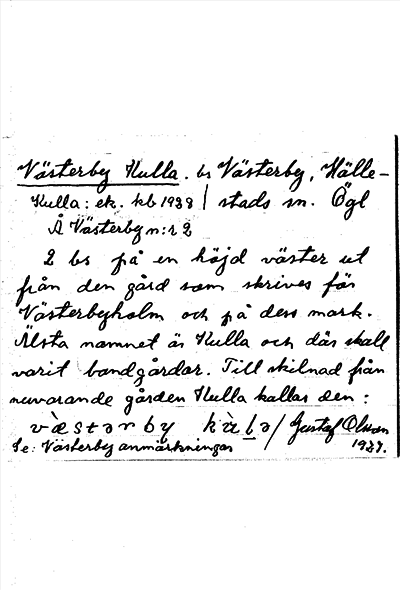 Västerby Kulla. bs Västerby, Hälle-
Kulla: ek. kb 1938 / stads sn. Ögl
Å Västerby n:r 2
2 bs på en höjd väster ut
från den gård som skrives för
Västerbyholm och på dess mark.
Älsta namnet är Kulla och där skall
varit bondgårdar. Till skilnad från
nuvarande gården Kulla kallas den:
vὰstərby / Gustaf Olsson
Se: Västerby anmärkningar 1937.